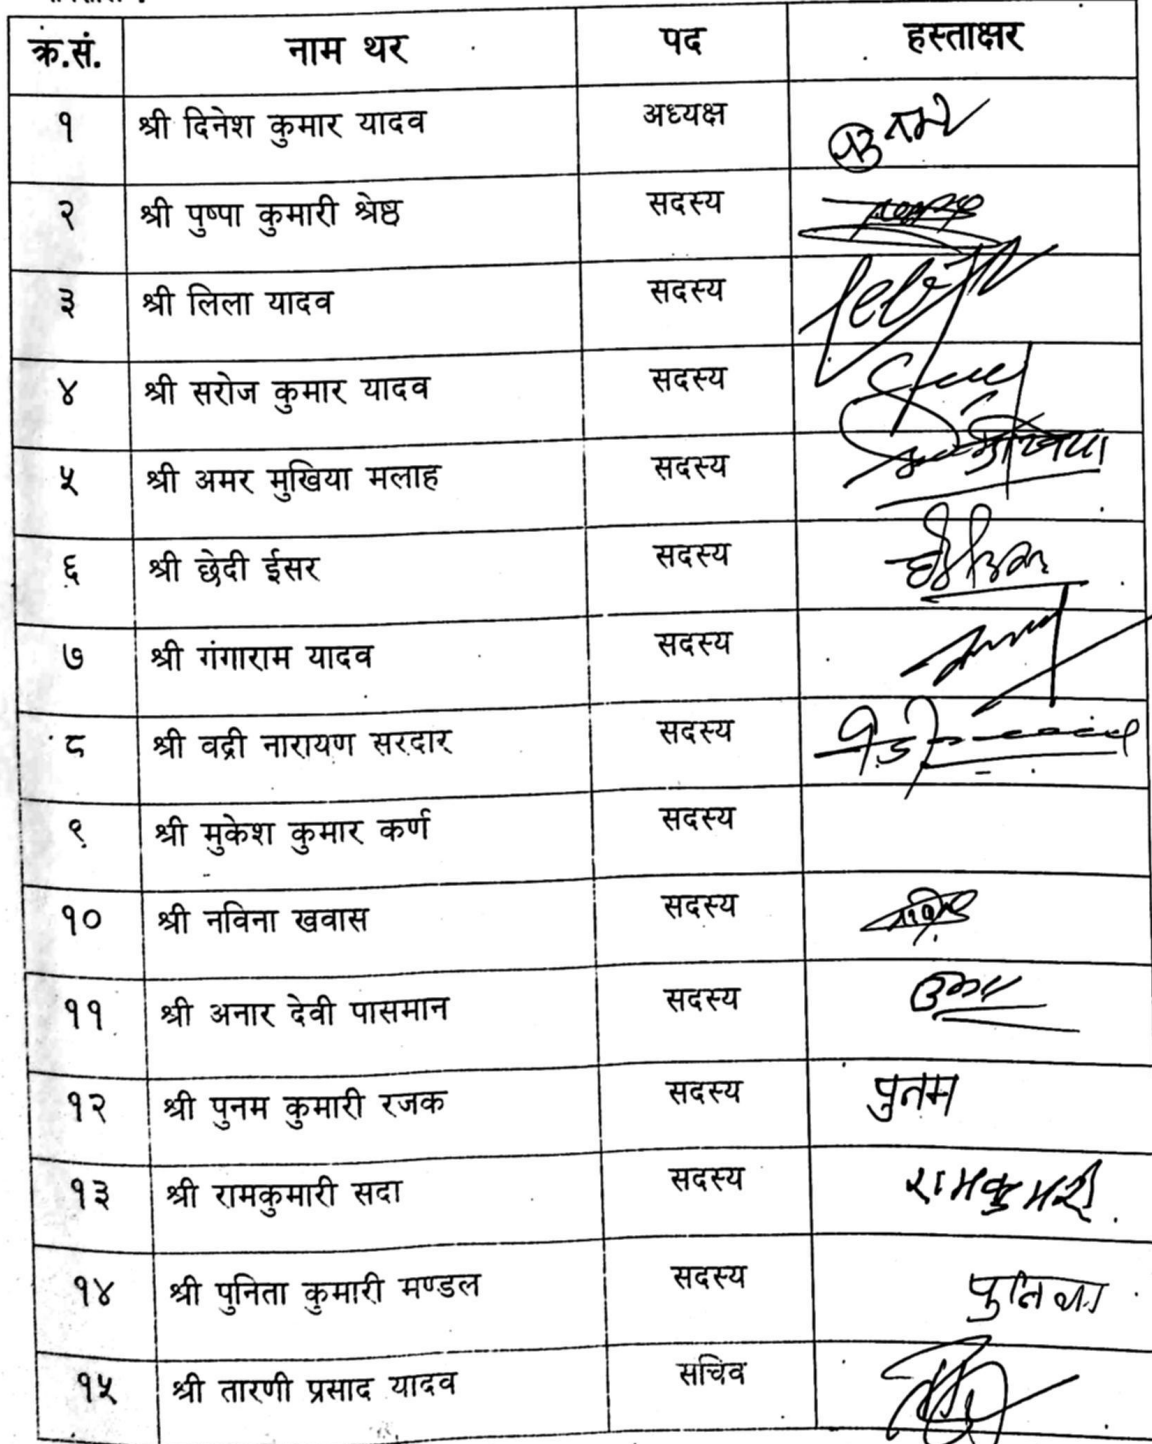 क्र.सं. नाम थर पद हस्ताक्षर
१ श्री दिनेश कुमार यादव अध्यक्ष
२ श्री पुष्पा कुमारी श्रेष्ठ सदस्य
३ श्री लिला यादव सदस्य
४ श्री सरोज कुमार यादव सदस्य
५ श्री अमर मुखिया मलाह सदस्य
६ श्री छेदी ईसर सदस्य
७ श्री गंगाराम यादव सदस्य
८ श्री वद्री नारायण सरदार सदस्य
९ श्री मुकेश कुमार कर्ण सदस्य
१० श्री नविना खवास सदस्य
११ श्री अनार देवी पासमान सदस्य
१२ श्री पुनम कुमारी रजक सदस्य पुनम
१३ श्री रामकुमारी सदा सदस्य रामकुमारी
१४ श्री पुनिता कुमारी मण्डल सदस्य
१५ श्री तारणी प्रसाद यादव सचिव